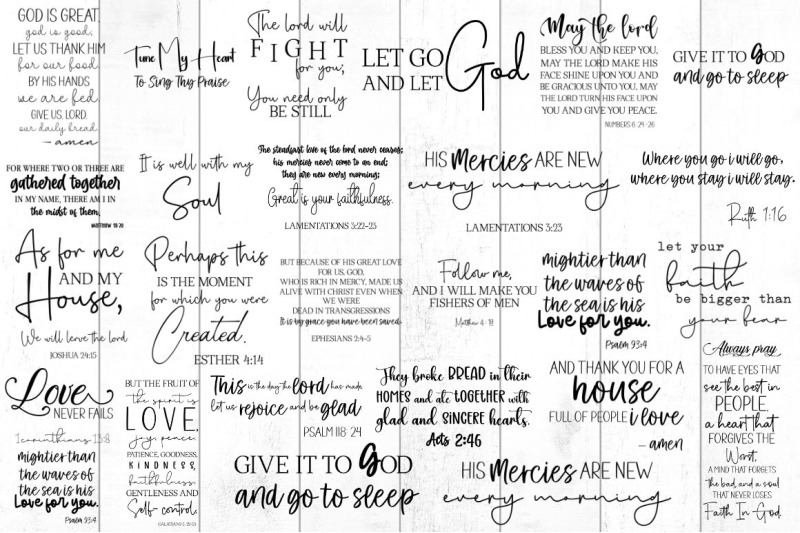 GOD IS GREAT,
god is good,
LET US THANK HIM
for our food.
BY HIS HANDS
we are fed.
GIVE US, LORD,
our daily bread.
- amen
Tune My Heart
To Sing Thy Praise
The lord will
FIGHT
for you;
You need only
BE STILL
LET GO
AND LET
God
May the lord
BLESS YOU AND KEEP YOU,
MAY THE LORD MAKE HIS
FACE SHINE UPON YOU AND
BE GRACIOUS UNTO YOU, MAY
THE LORD TURN HIS FACE UPON
YOU AND GIVE YOU PEACE.
NUMBERS 6:24-26
GIVE IT TO GOD
and go to sleep
FOR WHERE TWO OR THREE ARE
gathered together
IN MY NAME, THERE AM I IN
the midst of them.
MATTHEW 18:20
It is well with my
Soul
The steadfast love of the lord never ceases;
his mercies never come to an end;
they are new every morning;
Great is your faithfulness.
LAMENTATIONS 3:22-23
HIS Mercies ARE NEW
every morning
LAMENTATIONS 3:23
Where you go i will go,
where you stay i will stay.
Ruth 1:16
As for me
AND MY
House,
We will serve the lord
JOSHUA 24:15
Perhaps this
IS THE MOMENT
for which you were
Created.
ESTHER 4:14
BUT BECAUSE OF HIS GREAT LOVE
FOR US, GOD,
WHO IS RICH IN MERCY, MADE US
ALIVE WITH CHRIST EVEN WHEN
WE WERE
DEAD IN TRANSGRESSIONS
It is by grace you have been saved.
EPHESIANS 2:4-5
Follow me,
AND I WILL MAKE YOU
FISHERS OF MEN
Matthew 4:19
mightier than
the waves of
the sea is his
Love for you.
Psalm 93:4
let your
faith
be bigger than
your fear
Love
NEVER FAILS
1 corinthians 13:8
BUT THE FRUIT OF
the spirit is
LOVE,
joy, peace,
PATIENCE, GOODNESS,
KINDNESS,
faithfulness,
GENTLENESS AND
Self-control.
GALATIANS 5:22-23
This is the day the lord has made
let us rejoice and be glad
PSALM 118:24
They broke BREAD in their
HOMES and ate TOGETHER with
glad and SINCERE hearts.
Acts 2:46
AND THANK YOU FOR A
house
FULL OF PEOPLE i love
- amen
Always pray
TO HAVE EYES THAT
see the best in
PEOPLE,
a heart that
FORGIVES THE
Worst,
A MIND THAT FORGETS
the bad, and a soul
THAT NEVER LOSES
Faith In God.
mightier than
the waves of
the sea is his
Love for you.
Psalm 93:4
GIVE IT TO GOD
and go to sleep
HIS Mercies ARE NEW
every morning